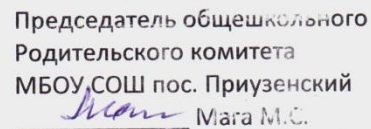 Председатель общешкольного
Родительского комитета
МБОУ СОШ пос. Приузенский
Мага М.С.